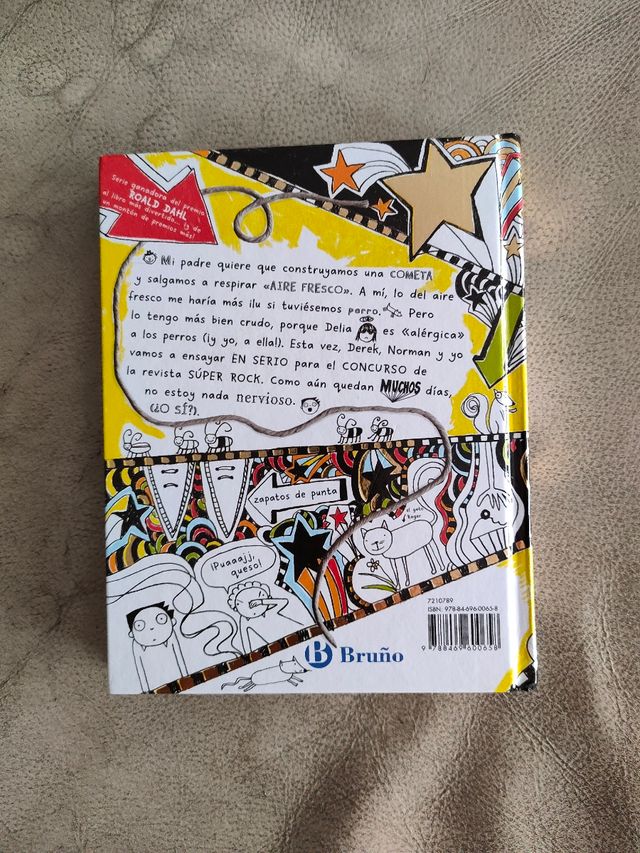 Serie ganadora del premio
ROALD DAHL
al libro más divertido... ¡y de
un montón de premios más!
Mi padre quiere que construyamos una COMETA
y salgamos a respirar «AIRE FRESCO». A mí, lo del aire
fresco me haría más ilu si tuviésemos perro. Pero
lo tengo más bien crudo, porque Delia es «alérgica»
a los perros (¡y yo, a ella!). Esta vez, Derek, Norman y yo
vamos a ensayar EN SERIO para el CONCURSO de
la revista SÚPER ROCK. Como aún quedan MUCHOS días,
no estoy nada nervioso.
(¿O SÍ?).
zapatos de punta
el gato
Roger
¡Puaaajj,
queso!
7210789
ISBN: 978-84-696-0065-8
9 788469 600658
B Bruño